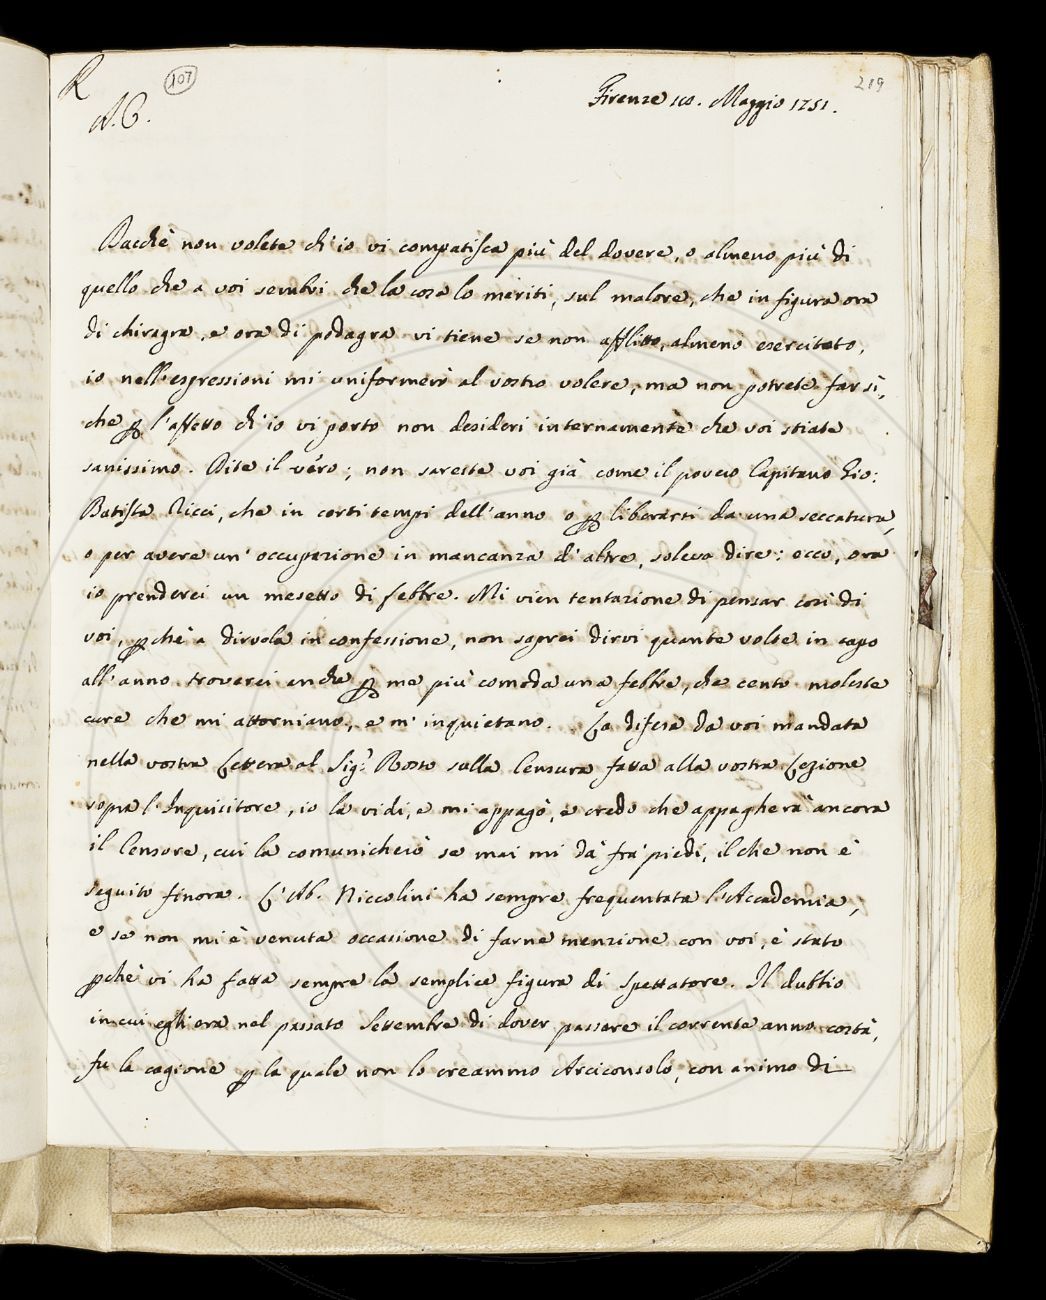 R
107
219
A. C.
Firenze 10. Maggio 1751.
Dacchè non volete ch'io vi compatisca più del dovere, o almeno più di
quello che a voi sembri che la cosa lo meriti, sul malore, che in figura ora
di chiragra, e ora di podagra vi tiene se non afflitto, almeno esercitato,
io nell'espressioni mi uniformerò al vostro volere, ma non potrete far sì,
che p l'affetto ch'io vi porto non desideri internamente che voi stiate
sanissimo. Dite il vero; non sareste voi già come il povero Capitano Gio:
Batista Ricci, che in certi tempi dell'anno o p liberarsi da una seccatura,
o per avere un'occupazione in mancanza d'altre, soleva dire: ecco, ora
io prenderei un mesetto di febbre. Mi vien tentazione di pensar così di
voi, pchè a dirvela in confessione, non saprei dirvi quante volte in capo
all'anno troverei anche p me più comoda una febbre, che cento moleste
cure che mi attorniano, e m'inquietano. La difesa da voi mandata
nella vostra Lettera al Sig.r Rosso sulla Censura fatta alla vostra Lezione
sopra l'Inquisitore, io la vidi, e mi appagò, e credo che appagherà ancora
il Censore, cui la comunicherò se mai mi dà frà piedi, il che non è
seguito finora. L'Ab. Niccolini ha sempre frequentata l'Accademia,
e se non mi è venuta occasione di farne menzione con voi, è stato
pchè vi ha fatta sempre la semplice figura di Spettatore. Il dubbio
in cui egli era nel passato Settembre di dover passare il corrente anno costà,
fu la cagione p la quale non lo creammo Arciconsolo, con animo di